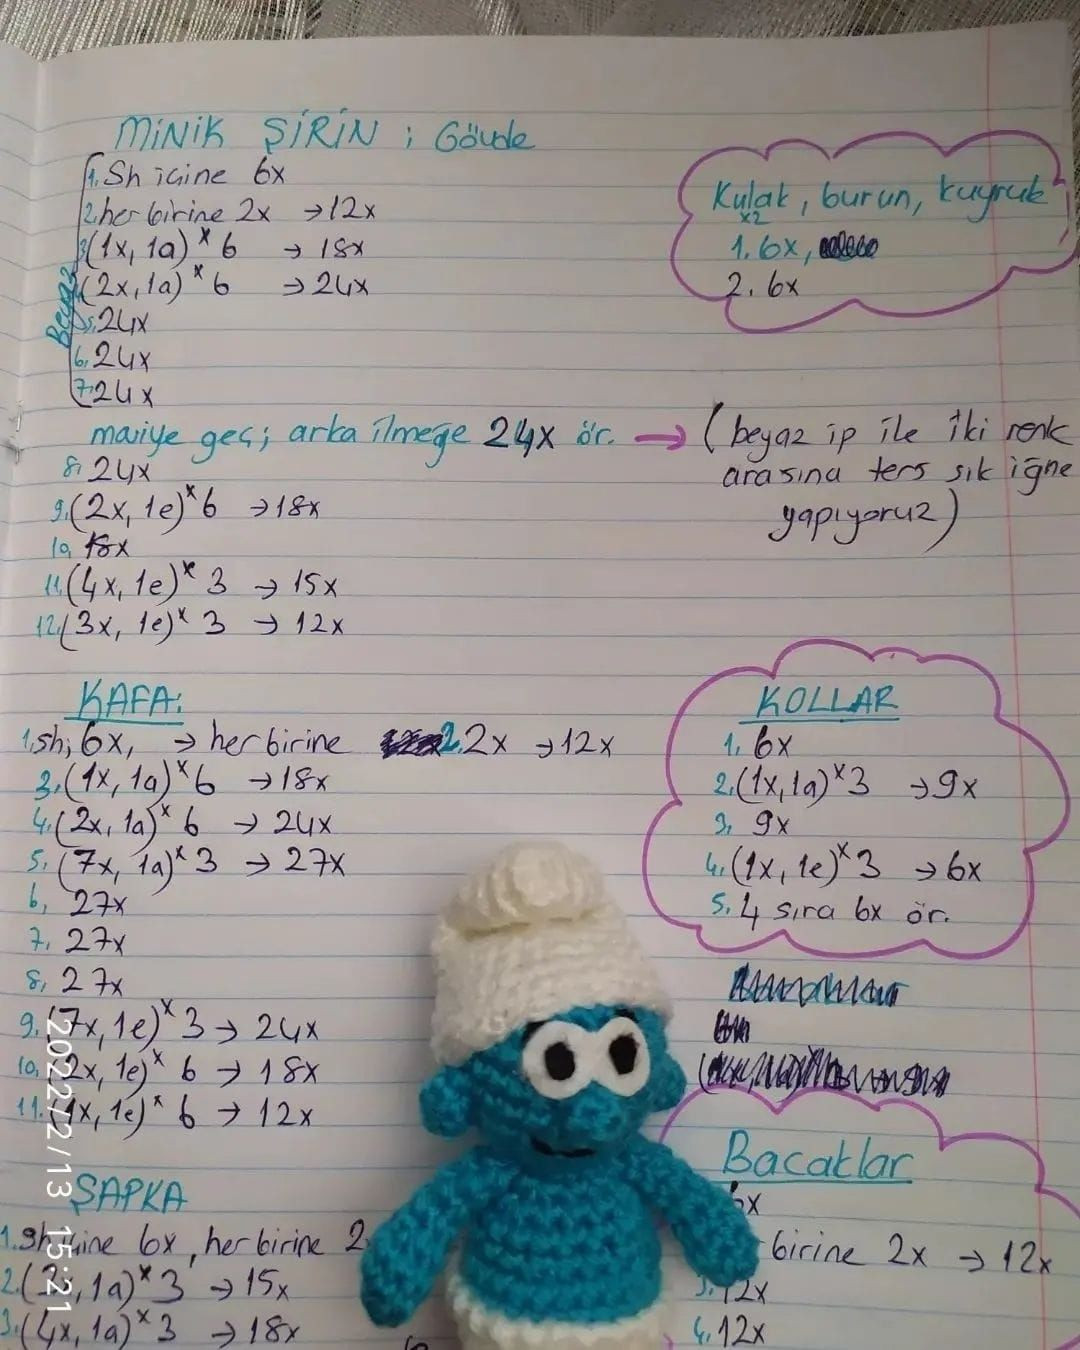 MİNİK ŞİRİN ; Gövde
1. Sh içine 6x
2. her birine 2x → 12x
3. (1x, 1a) x 6 → 18x
(2x, 1a) x 6 → 24x
5. 24x
6. 24x
7. 24x
Beyaz
maviye geç; arka ilmeğe 24x ör. → (beyaz ip ile iki renk
arasına ters sık iğne
yapıyoruz)
8. 24x
9. (2x, 1e) x 6 → 18x
10. 18x
11. (4x, 1e) x 3 → 15x
12. (3x, 1e) x 3 → 12x
Kulak, burun, kuyruk
x2
1. 6x,
2. 6x
KAFA:
1. sh; 6x, → her birine 2. 2x → 12x
3. (1x, 1a) x 6 → 18x
4. (2x, 1a) x 6 → 24x
5. (7x, 1a) x 3 → 27x
6. 27x
7. 27x
8. 27x
9. (7x, 1e) x 3 → 24x
10. (2x, 1e) x 6 → 18x
11. (1x, 1e) x 6 → 12x
KOLLAR
1. 6x
2. (1x, 1a) x 3 → 9x
3. 9x
4. (1x, 1e) x 3 → 6x
5. 4 sıra 6x ör.
ŞAPKA
1. Sh içine 6x, her birine 2
2. (3x, 1a) x 3 → 15x
3. (4x, 1a) x 3 → 18x
Bacaklar
6x
birine 2x → 12x
3. 12x
4. 12x
2022/2/13 15:21